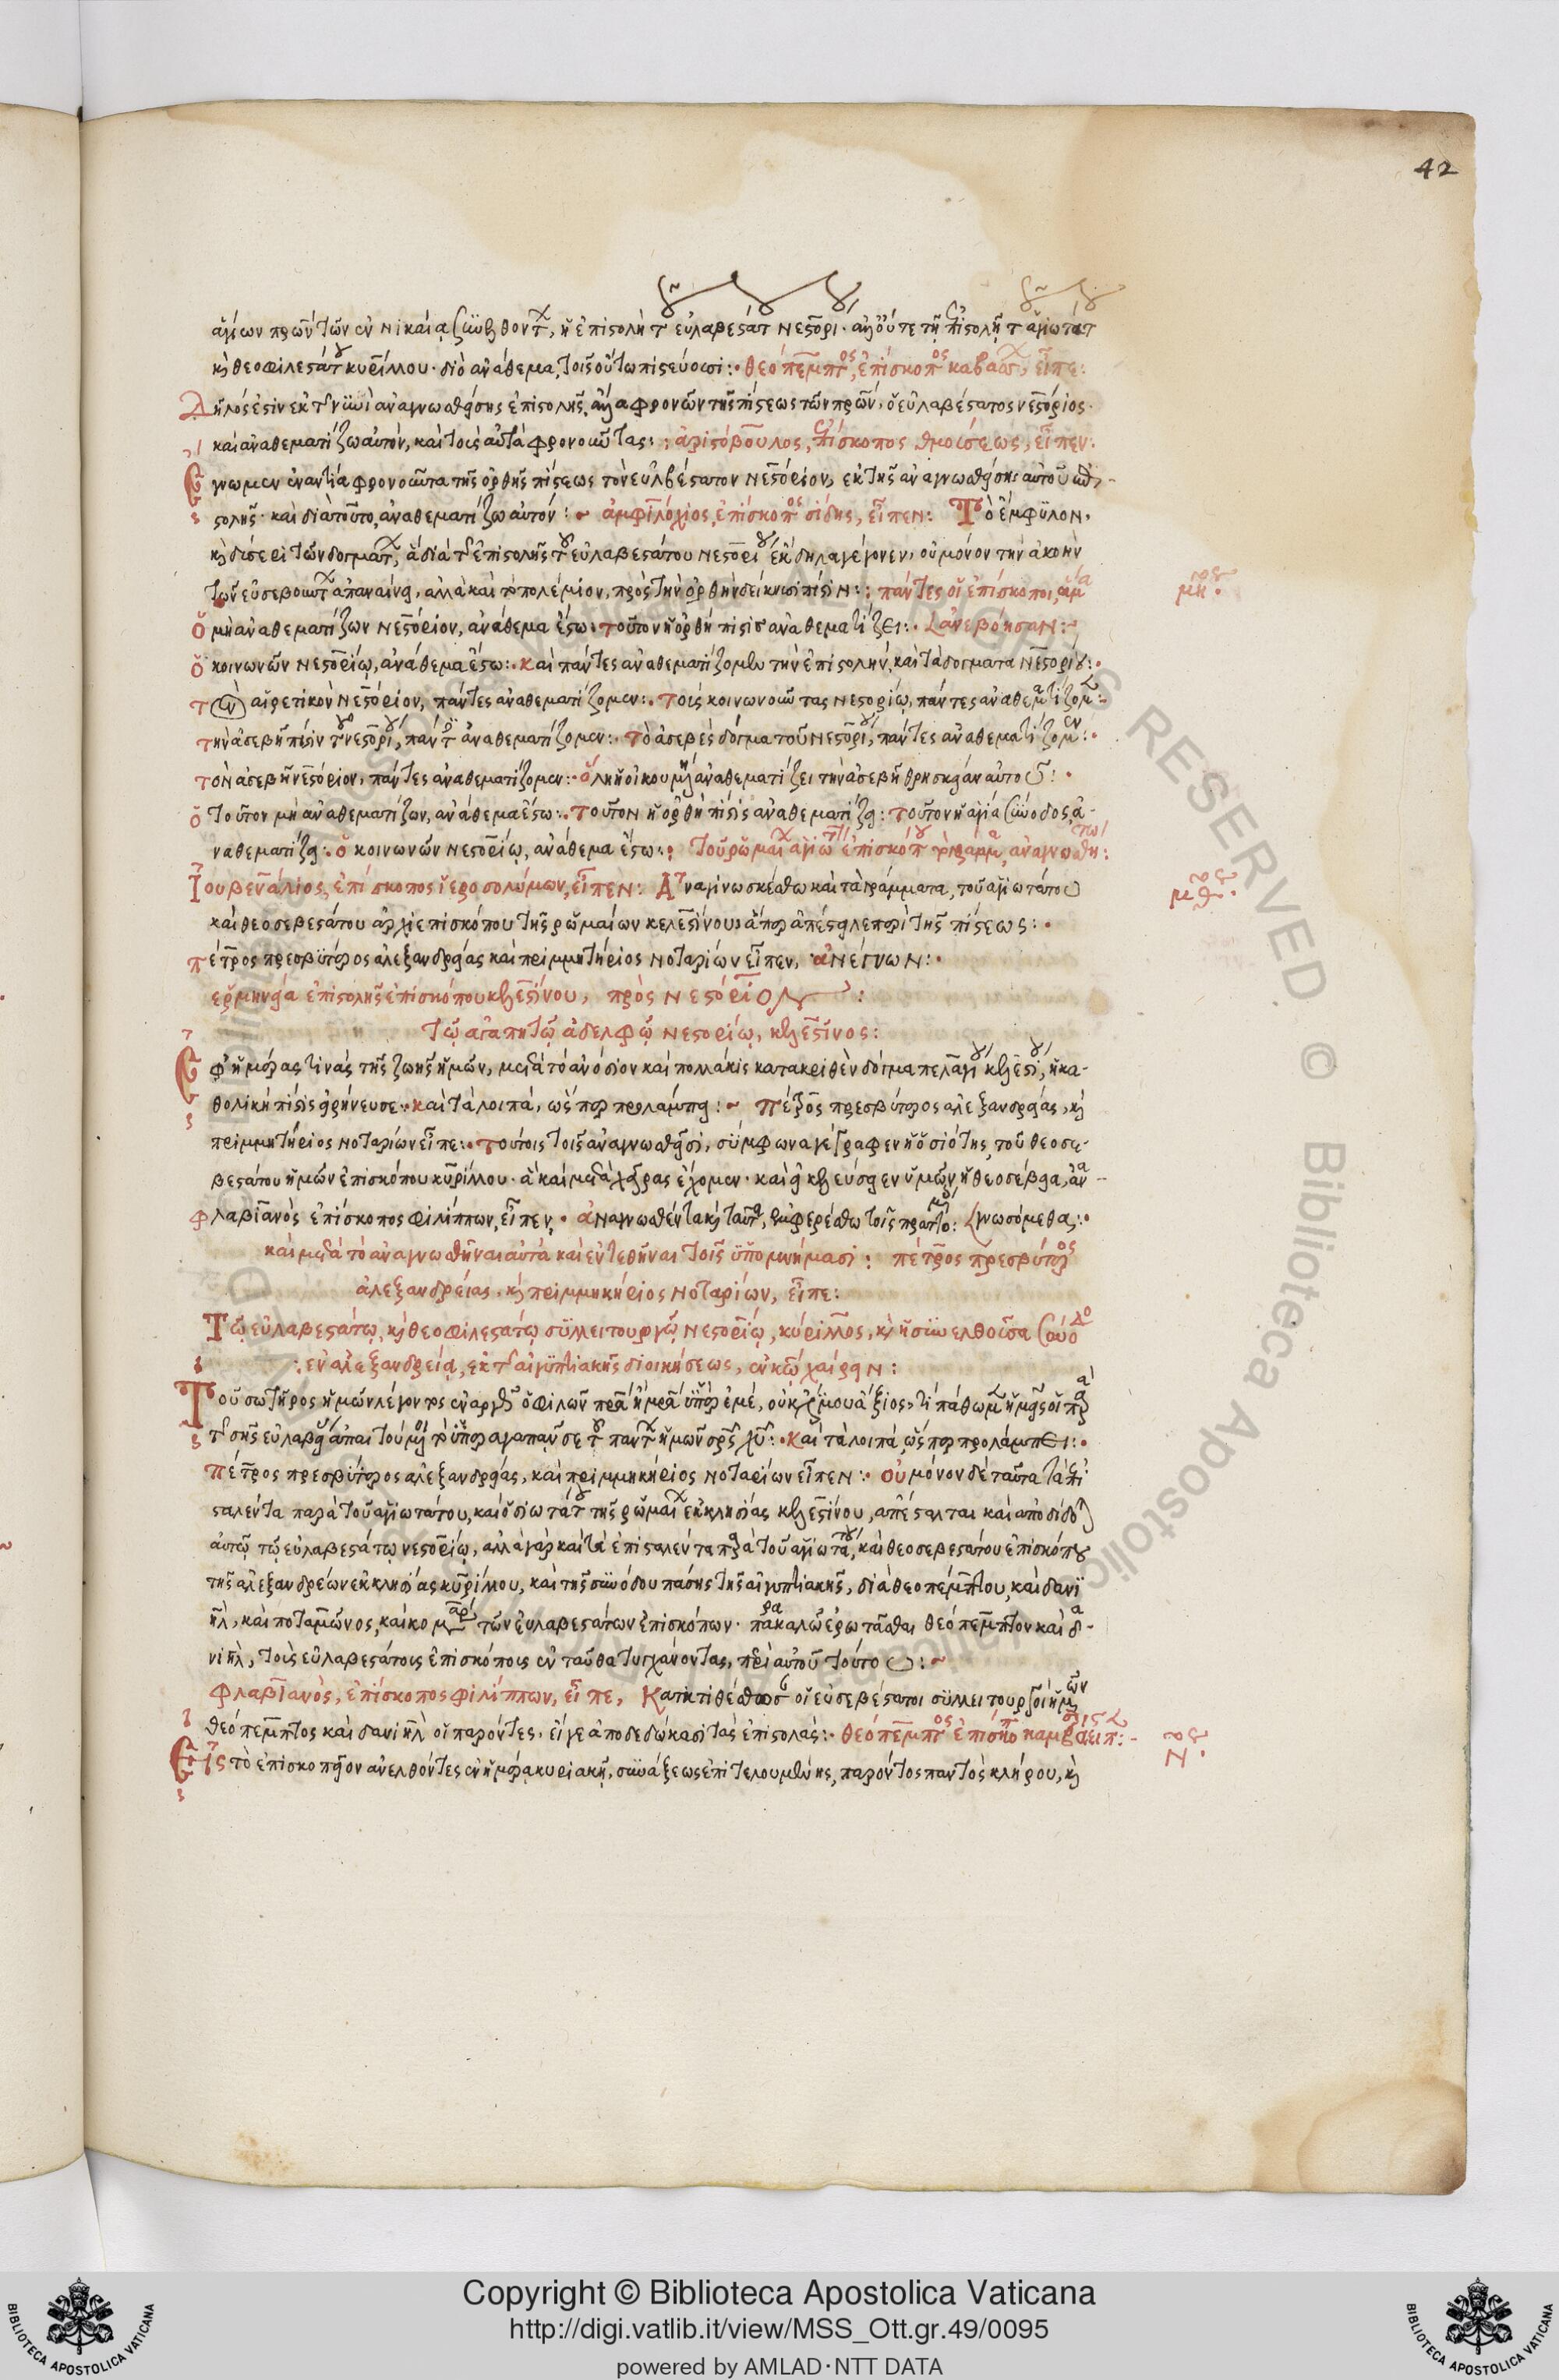 42
ἁγίων πρων τῶν ἐν νικαία συνελθοντ, ἡ ἐπιστολὴ τ εὐλαβεστάτ νεστορι· ἀλλ' οὔτε τῆ ἐπιστολῆ τ ἁγιωτάτ
κὶ θεοφιλεστάτου κυρίλλου· διὸ ἀνάθεμα, τοῖς οὕτω πιστεύουσι:· θεόπεμπτος, ἐπίσκοπος καβασ, εἶπε:
Δῆλός ἐστιν ἐκ τῆς νυνὶ ἀναγνωσθείσης ἐπιστολῆς, ἀλλα φρονῶν τῆς πίστεως τῶν πρων, ὁ εὐλαβέστατος νεστόριος·
καὶ ἀναθεματίζω αὐτὸν, καὶ τοὺς αὐτὰ φρονοῦντας: ἀριστόβουλος, ἐπίσκοπος θμοίσεως, εἶπεν:
Ἔγνωμεν ἐναντία φρονοῦντα τῆς ὀρθῆς πίστεως τὸν εὐλαβέστατον νεστόριον, ἐκ τῆς ἀναγνωσθείσης αὐτοῦ ἐπι-
στολῆς· καὶ διατοῦτο, ἀναθεματίζω αὐτόν: ἀμφιλόχιος, ἐπίσκοπος σίδης, εἶπεν: Τὸ ἔμφυλον,
κὶ δισερὶ τῶν δογματων, ἃ διὰ τῆς ἐπιστολῆς τοῦ εὐλαβεστάτου νεστορίου ἔκδηλα γέγονεν, οὐ μόνον τὴν ἀκοὴν
τῶν εὐσεβούντων ἀπαναίνει, ἀλλὰ καὶ τὸ πολέμιον, πρὸς τὴν ὀρθὴν δείκνυσι πίστιν: πάντες οἱ ἐπίσκοποι, ἅμα
ὁ μὴ ἀναθεματίζων νεστόριον, ἀνάθεμα ἔστω· τοῦτον ἡ ὀρθὴ πίστις ἀναθεματίζει: ἀνεβόησαν:
ὁ κοινωνῶν νεστορίῳ, ἀνάθεμα ἔστω:· καὶ πάντες ἀναθεματίζομεν τὴν ἐπιστολήν, καὶ τὰ δόγματα νεστορίου:
τὸν αἱρετικὸν νεστόριον, πάντες ἀναθεματίζομεν:· τοὺς κοινωνοῦντας νεστορίῳ, πάντες ἀναθεματίζομεν:
τὴν ἀσεβῆ πίστιν τοῦ νεστορίου, πάντες ἀναθεματίζομεν:· τὸ ἀσεβὲς δόγμα τοῦ νεστορίου, πάντες ἀναθεματίζομεν:
τὸν ἀσεβῆ νεστόριον, πάντες ἀναθεματίζομεν:· ὅλη ἡ οἰκουμένη ἀναθεματίζει τὴν ἀσεβῆ θρησκείαν αὐτοῦ:
ὁ τοῦτον μὴ ἀναθεματίζων, ἀνάθεμα ἔστω:· τοῦτον ἡ ὀρθὴ πίστις ἀναθεματίζει: τοῦτον ἡ ἁγία σύνοδος, ἀ-
ναθεματίζει:· ὁ κοινωνῶν νεστορίῳ, ἀνάθεμα ἔστω: τοῦ ῥωμαίων ἁγιωτ ἐπισκόπου τὰ γράμματα, ἀναγνωσθήτω:
Ἰουβενάλιος, ἐπίσκοπος ἱεροσολύμων, εἶπεν: Ἀναγινωσκέσθω καὶ τὰ γράμματα, τοῦ ἁγιωτάτου
καὶ θεοσεβεστάτου ἀρχιεπισκόπου τῆς ῥωμαίων κελεστίνου, ἅπερ ἀπέστειλε περὶ τῆς πίστεως:
πέτρος πρεσβύτερος ἀλεξανδρείας καὶ πριμμητήριος νοταρίων εἶπεν, ἀνέγνων:
ἑρμηνεία ἐπιστολῆς ἐπισκόπου κελεστίνου, πρὸς νεστόριον:
τῷ ἀγαπητῷ ἀδελφῷ νεστορίῳ, κελεστῖνος:
Ἐφ' ἡμέρας τινὰς τῆς ζωῆς ἡμῶν, μετὰ τὸ ἀνόσιον καὶ πολλάκις κατακριθὲν δόγμα πελαγίου κελεστίου, ἡ κα-
θολικὴ πίστις εἰρήνευσε:· καὶ τὰ λοιπὰ, ὥσπερ προλάμπει: πέτρος πρεσβύτερος ἀλεξανδρείας, κὶ
πριμμητήριος νοταρίων εἶπε:· τούτοις τοῖς ἀναγνωσθεῖσι, σύμφωνα γέγραφεν ἡ ὁσιότης, τοῦ θεοσε-
βεστάτου ἡμῶν ἐπισκόπου κυρίλλου· ἃ καὶ μετὰ χεῖρας ἔχομεν· καὶ εἰ κελεύσειεν ὑμῶν ἡ θεοσέβεια, ἀνα-
φλαβιανὸς ἐπίσκοπος φιλίππων, εἶπεν, ἀναγνωσθέντα κὶ ταῦτα, ἐμφερέσθω τοῖς πραττομένοις: γνωσόμεθα:
καὶ μετὰ τὸ ἀναγνωσθῆναι αὐτὰ καὶ ἐντεθῆναι τοῖς ὑπομνήμασι: πέτρος πρεσβύτερος
ἀλεξανδρείας, κὶ πριμμηκήριος νοταρίων, εἶπε:
Τῷ εὐλαβεστάτῳ, κὶ θεοφιλεστάτῳ συλλειτουργῷ νεστορίῳ, κύριλλος, κὶ ἡ συνελθοῦσα σύνοδο
ἐν ἀλεξανδρείᾳ, ἐκ τῆς αἰγυπτιακῆς διοικήσεως, ἐν κῷ χαίρειν:
Τοῦ σωτῆρος ἡμῶν λέγοντος ἐναργῶς ὁ φιλῶν πρα ἢ μρα ὑπὲρ ἐμέ, οὐκ ἔστι μου ἄξιος, τί πάθωμεν ἡμεῖς οἱ παρὰ
τῆς σῆς εὐλαβείας ἀπαιτούμενοι τὸ ὑπεραγαπᾶν σε τοῦ πάντων ἡμῶν σρς χυ:· καὶ τὰ λοιπὰ, ὥσπερ προλάμπει:
πέτρος πρεσβύτερος ἀλεξανδρείας, καὶ πριμμηκήριος νοταρίων εἶπεν:· οὐ μόνον δὲ ταῦτα τὰ ἐπι
σταλέντα παρὰ τοῦ ἁγιωτάτου, καὶ ὁσιωτάτου τῆς ῥωμαίων ἐκκλησίας κελεστίνου, ἀπέσταλται καὶ ἀποδίδοται
αὐτῷ τῷ εὐλαβεστάτῳ νεστορίῳ, ἀλλὰ γὰρ καὶ τὰ ἐπισταλέντα παρὰ τοῦ ἁγιωτάτου, καὶ θεοσεβεστάτου ἐπισκόπου
τῆς ἀλεξανδρέων ἐκκλησίας κυρίλλου, καὶ τῆς συνόδου πάσης τῆς αἰγυπτιακῆς, διὰ θεοπέμπτου, καὶ δανϊ
ηλ, καὶ ποταμῶνος, καὶ κομαρίου τῶν εὐλαβεστάτων ἐπισκόπων· παρακαλῶ ἐρωτᾶσθαι θεόπεμπτον καὶ δα-
νιηλ, τοὺς εὐλαβεστάτους ἐπισκόπους ἐνταῦθα τυγχάνοντας, περὶ αὐτοῦ τούτου:
φλαβιανὸς, ἐπίσκοπος φιλίππων, εἶπε, Κατατιθέσθωσαν οἱ εὐσεβέστατοι συλλειτουργοὶ ἡμῶν
θεόπεμπτος καὶ δανιηλ οἱ παρόντες, εἴγε ἀποδεδώκασι τὰς ἐπιστολάς:· θεόπεμπτος ἐπίσκοπ καμβάσεις, εἶπ:
Εἰς τὸ ἐπισκοπεῖον ἀνελθόντες ἐν ἡμέρᾳ κυριακῇ, συνάξεως ἐπιτελουμένης, παρόντος παντὸς κλήρου, κὶ
Copyright © Biblioteca Apostolica Vaticana
http://digi.vatlib.it/view/MSS_Ott.gr.49/0095
powered by AMLAD·NTT DATA